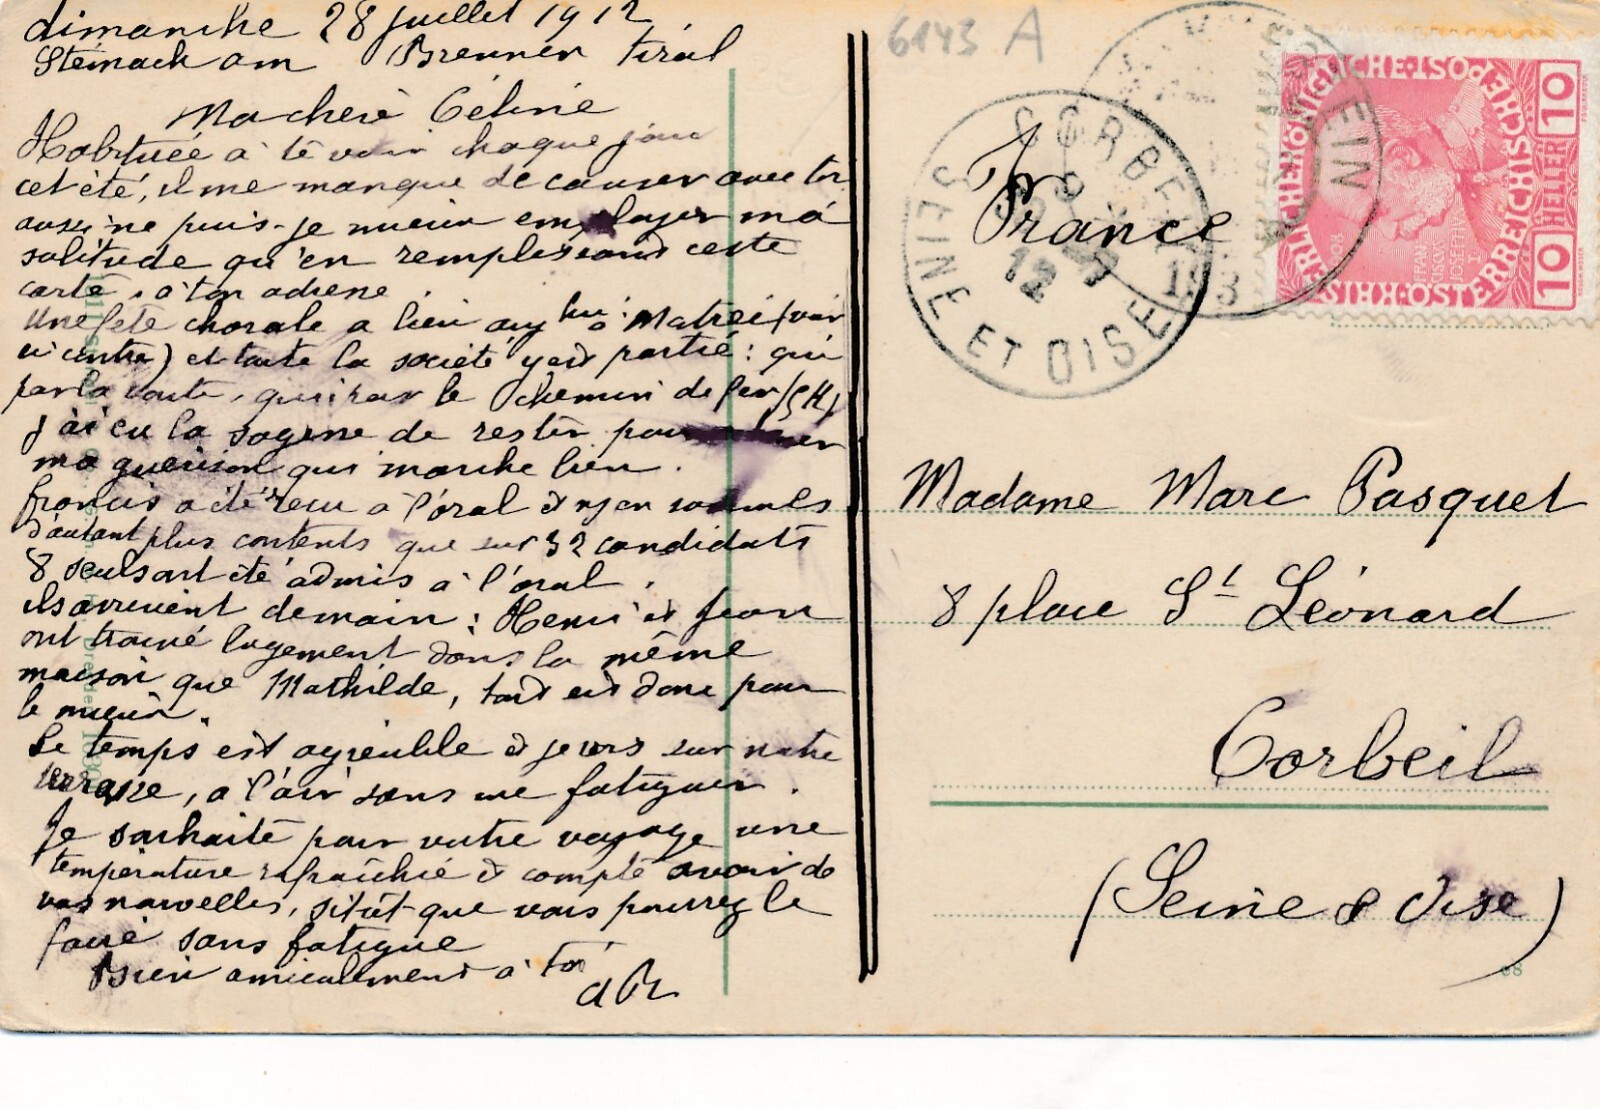 dimanche 28 juillet 1912
Steinach am Brenner Tirol
Ma chère Céline
Habituée à te voir chaque jour
cet été, il me manque de causer avec toi
aussi ne puis-je mieux employer ma
solitude qu'en remplissant cette
carte, à ton adresse.
Une fête chorale a lieu aujhui à Matrei (voir
ci contre) et toute la société y est partie : qui
par la route, qui par le chemin de fer
j'ai eu la sagesse de rester pour
ma guérison qui marche bien.
francis a été reçu à l'oral & ns en sommes
d'autant plus contents que sur 32 candidats
8 seuls ont été admis à l'oral.
ils arrivent demain : Henri et Jean
ont trouvé logement dans la même
maison que Mathilde, tout est donc pour
le mieux.
Le temps est agréable & je vis sur notre
terrasse, à l'air sans me fatiguer.
Je souhaite pour votre voyage une
température rafraîchie & compte avoir de
vos nouvelles, sitôt que vous pourrez le
faire sans fatigue
Bien amicalement à toi
6143 A
France
CORBEIL
12
SEINE ET OISE
KAISERLICHE KÖNIGLICHE ÖSTERREICHISCHE POST
10 HELLER 10
Madame Marc Pasquet
8 place St Léonard
Corbeil
(Seine & Oise)